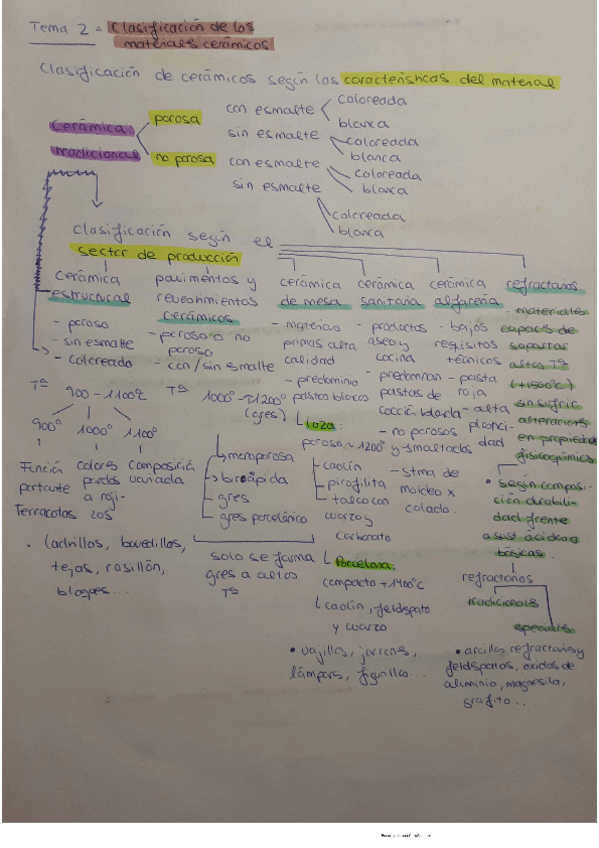 Tema 2 = Clasificación de los
materiales cerámicos
Clasificación de cerámicos según las características del material
Cerámica
tradicional
porosa
no porosa
con esmalte
coloreada
blanca
sin esmalte
coloreada
blanca
con esmalte
coloreada
blanca
sin esmalte
coloreada
blanca
Clasificación según el
sector de producción
cerámica
estructural
- poroso
- sin esmalte
- coloreado
Tª 900 - 1100º
900º 1000º 1100º
Función
portante
Terracotas
colores
pardos
a roji-
zos
composición
variada
• ladrillos, bovedillas,
tejas, rasillón,
bloques...
pavimentos y
revestimientos
cerámicos
- poroso o no
poroso
- con/sin esmalte
Tª 1000º - 1200º
(gres)
monoporosa
birápida
gres
gres porcelánico
solo se forma
gres a altas
Tª
cerámica
de mesa
- materias
primas alta
calidad
- predominio
pastas blancas
Loza:
porosa ~ 1200º y esmaltados
- caolín
- pirofilita
- talco con
cuarzo y
carbonato
- stma de
moldeo x
colado.
Porcelana:
compacto + 1400ºC
caolín, feldespato
y cuarzo
• vajillas, jarrones,
lámpars, figurillas...
cerámica
sanitaria
- productos
aseo y
cocina
- predominan
pastas de
cocción blanca
- no porosos
cerámica
alfarería
- bajos
requisitos
técnicos
- pasta
roja
- alta
plastici-
dad
refractarios
- materiales
capaces de
soportar
altas Tª
(+1500ºC)
sin sufrir
alteraciones
en propiedades
fisicoquímicas
• según composi-
ción durabili-
dad frente
a sust ácidas o
básicas.
refractarios
tradicionales
especiales
• arcillas refractarias y
feldespatos, óxidos de
aluminio, magnesita,
grafito...